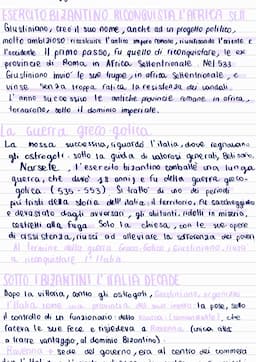 ESERCITO BIZANTINO RICONQUISTA L'AFRICA SETT.
Giustiniano, creò il suo nome, anche ad un progetto politico,
molto ambizioso: ricostruire l'antico impero romano, riunificando l'oriente e
l'occidente. Il primo passo, fu quello di riconquistare, le ex
province di Roma, in Africa Settentrionale. Nel 533
Giustiniano inviò le sue truppe, in africa settentrionale, e
vinse senza troppa fatica la resistenza dei vandali.
l'anno successivo le antiche provincie romane in africa,
tornarono, sotto il dominio imperiale.
La guerra greco-gotica
La mossa successiva, riguardò l'Italia, dove regnavano
gli ostrogoti. sotto la guida di valorosi generali, Belisario,
Narsete, l'esercito bizantino combatté una lunga
guerra, che durò 18 anni, e fu detta guerra greco-
gotica (535-553) Si trattò di uno dei periodi
più tristi della storia dell'Italia, il territorio, fu saccheggiato
e devastato dagli avversari, gli abitanti, ridotti in miseria,
costretti alla fuga. Solo la chiesa, con le sue opere
di assistenza, riuscì ad alleviare la sofferenza dei poveri
Al termine della guerra Greco-Gotica, Giustiniano, riuscì
a riconquistare l'Italia
SOTTO I BIZANTINI L'ITALIA DECADE
Dopo la vittoria, contro gli ostrogoti, Giustiniano, organizzò
l'Italia come una provincia del suo impero. la pose, sotto
il controllo di un funzionario: detto che
faceva le sue fece e risiedeva a Ravenna (unica città
a trarre vantaggio, al dominio Bizantino).
Ravenna = sede del governo, era al centro dei commerci